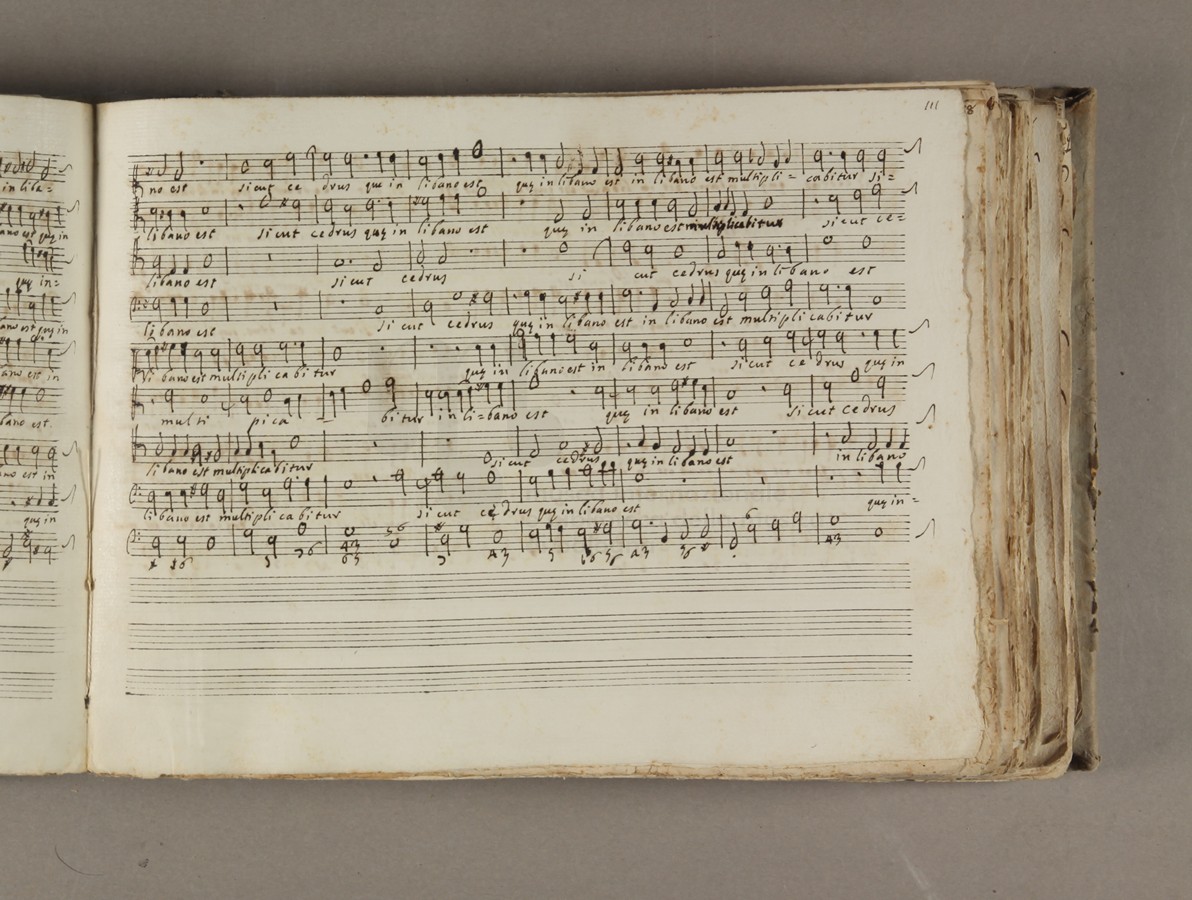 111
8
no est sicut ce drus que in libano est quę in libano est in libano est multipli = cabitur si =
libano est sicut cedrus quę in libano est quę in libano est multiplicabitur sicut ce =
libano est sicut cedrus si cut cedrus quę in libano est
libano est sicut cedrus quę in libano est in libano est multiplicabitur
li bano est multiplicabitur quę in libano est in libano est sicut ce drus quę in
multi pica bitur in li = bano est quę in libano est sicut cedrus
libano est multiplicabitur sicut cedrus quę in libano est in libano
libano est multiplicabitur sicut cę drus quę in libano est quę in =
in liba =
ano est quę in
quę in =
ano est quę in
bano est in
bano est
ano est in
quę in